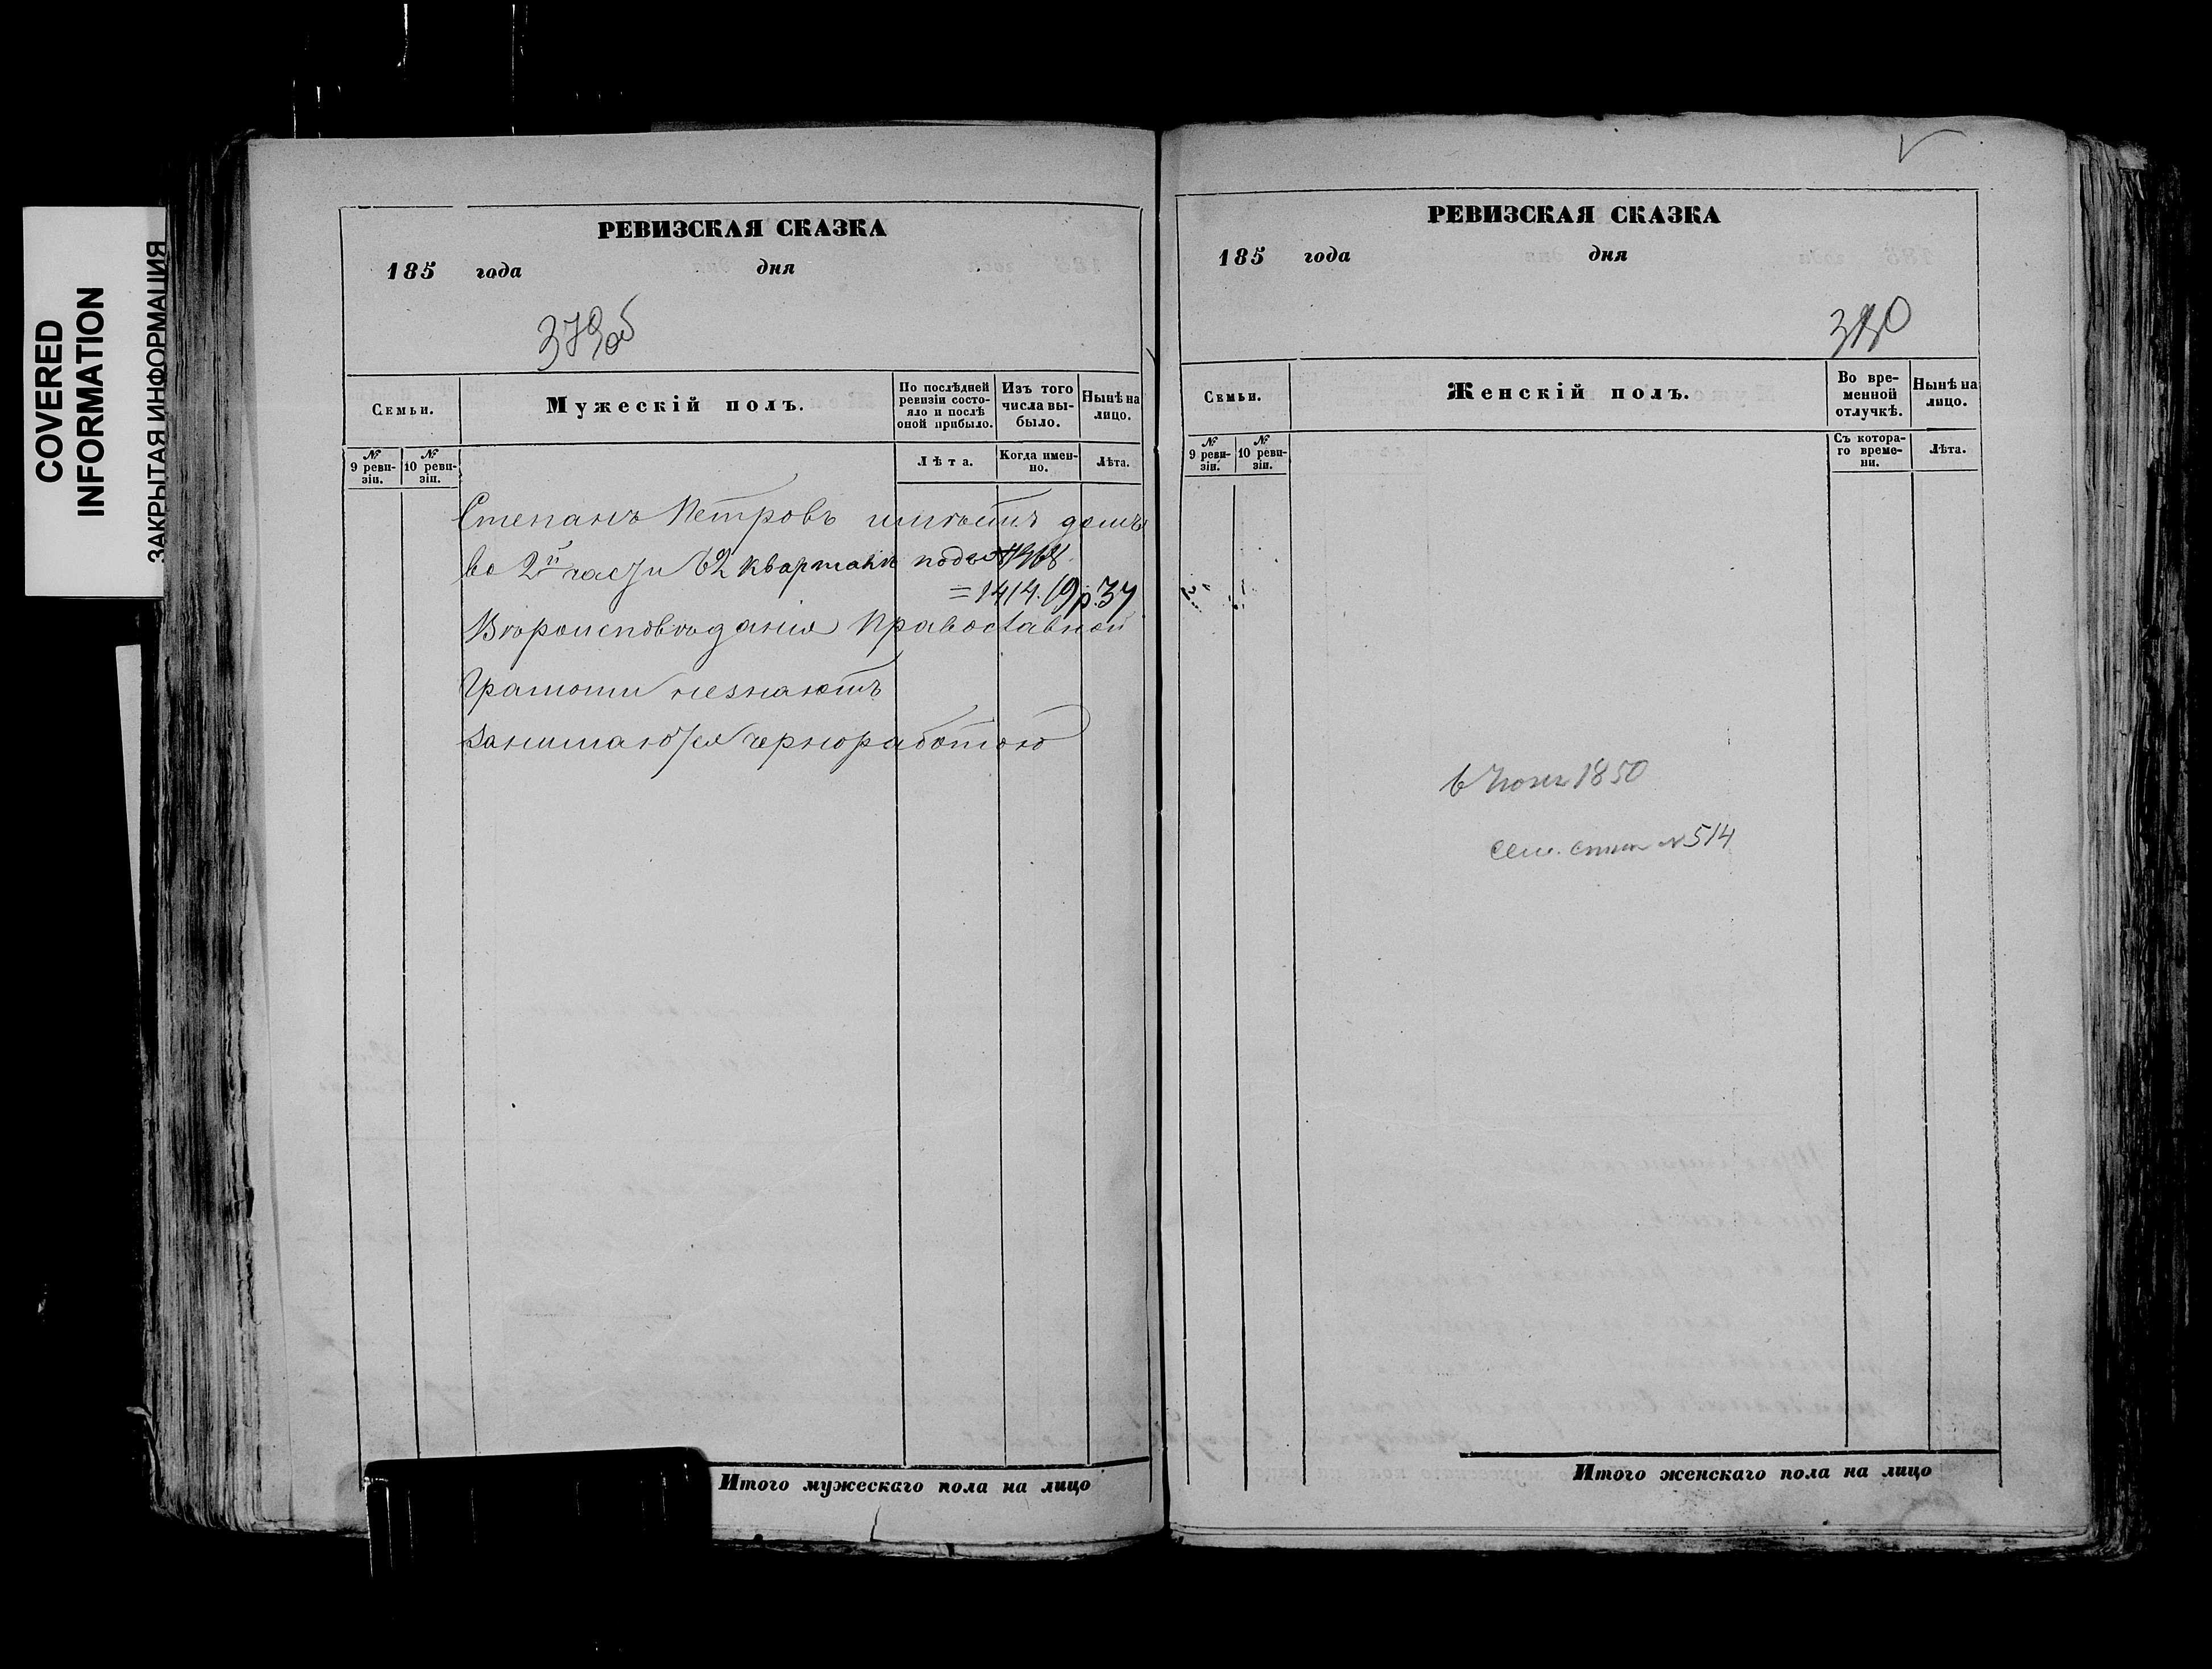 COVERED
INFORMATION
ЗАКРЫТАЯ ИНФОРМАЦИЯ
РЕВИЗСКАЯ СКАЗКА
185 года дня
379об
Семьи.
Мужескій полъ.
По послѣдней ревизіи состояло и послѣ оной прибыло.
Изъ того числа выбыло.
Нынѣ на лицо.
№ 9 ревизіи.
№ 10 ревизіи.
Лѣта.
Когда именно.
Лѣта.
Степанъ Петровъ имѣетъ домъ
во 2й части 62 кварталѣ подъ №
=1414. 19р.37
Вѣроисповѣданія Православной
Грамоти незнаютъ
Занимаются черноработою
Итого мужескаго пола на лицо
РЕВИЗСКАЯ СКАЗКА
185 года дня
380
Семьи.
Женскій полъ.
Во временной отлучкѣ.
Нынѣ на лицо.
№ 9 ревизіи.
№ 10 ревизіи.
Съ котораго времени.
Лѣта.
в 1850
№ 514
Итого женскаго пола на лицо